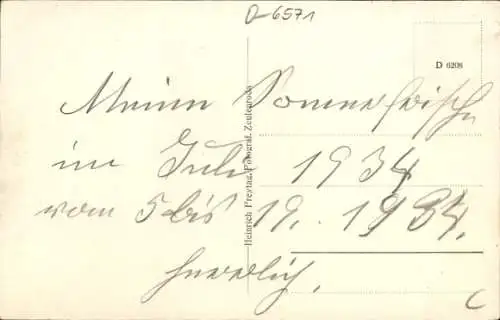 D-6571
D 6208
Meine Sommerfrische
im Juli 1934
vom 5 bis 19. 1934.
Heinrich Freytag, Fotograf, Zeulenroda